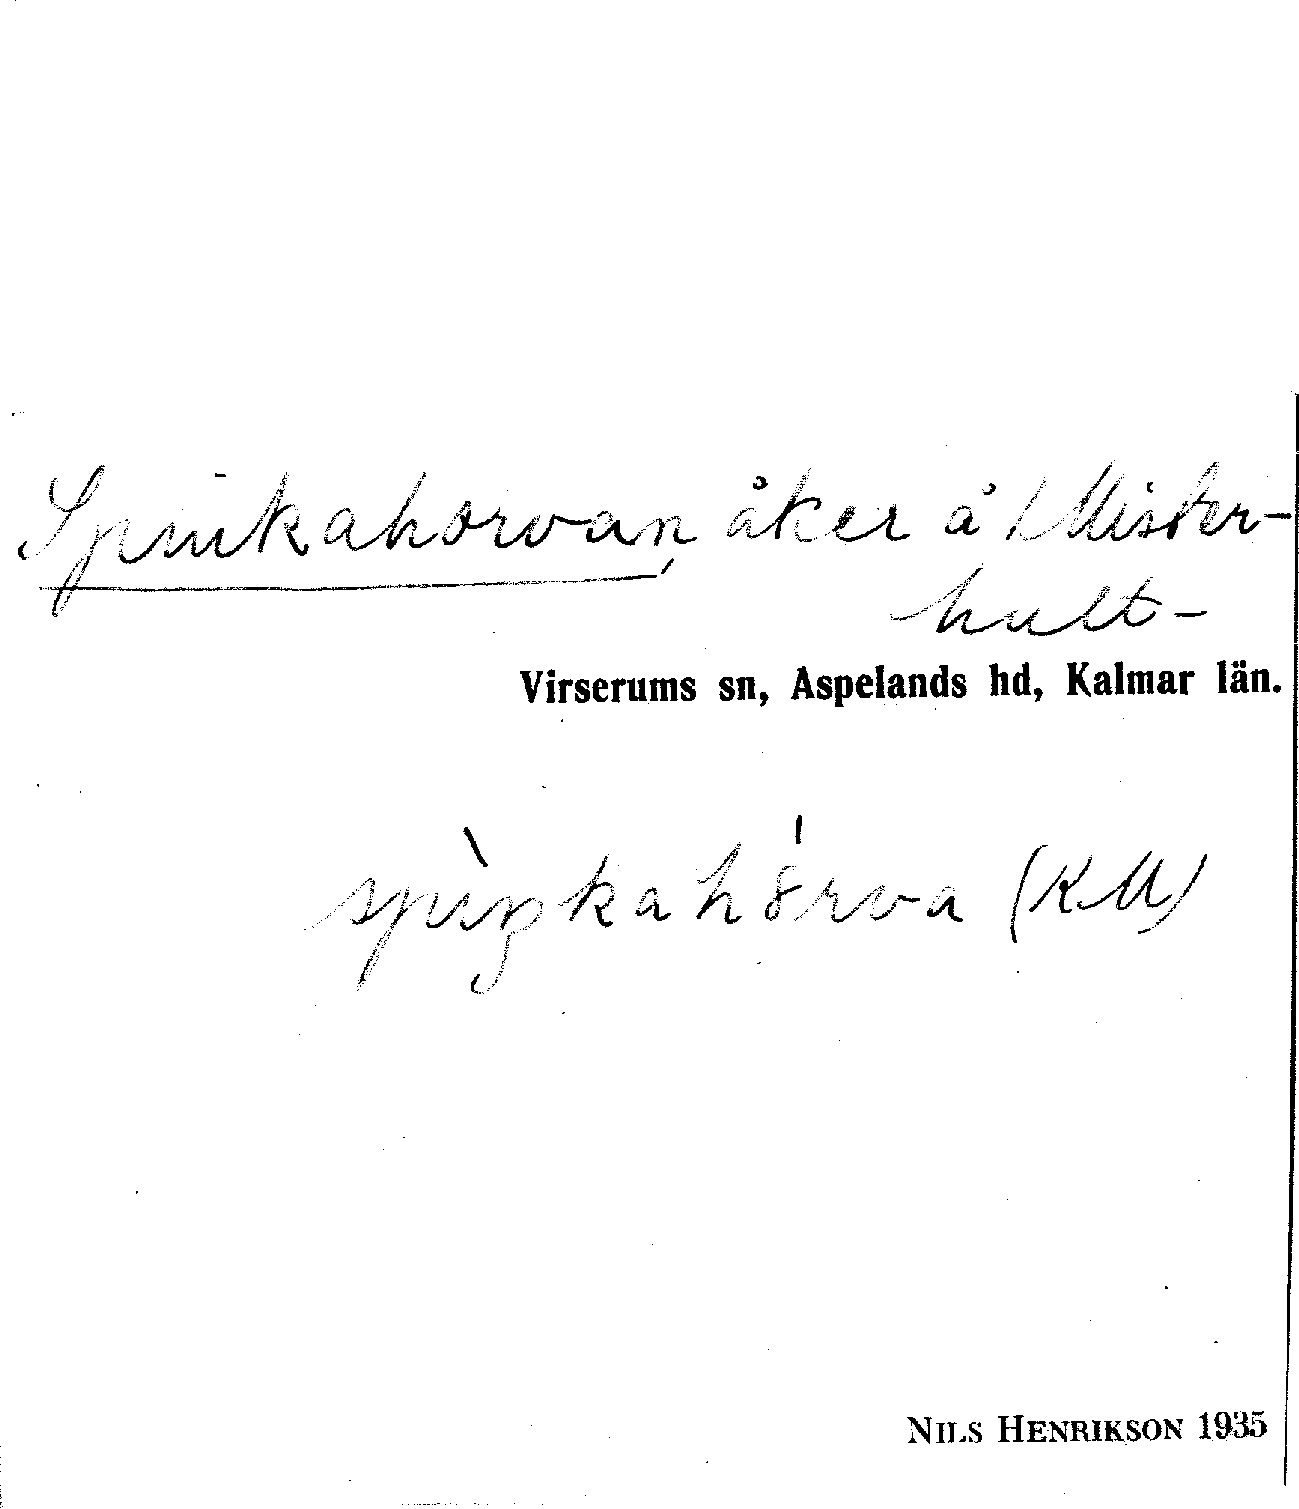 Spinkahorvan, åker å Mister-
hult -
Virserums sn, Aspelands hd, Kalmar län.
spìŋkahórva (KM)
NILS HENRIKSON 1935